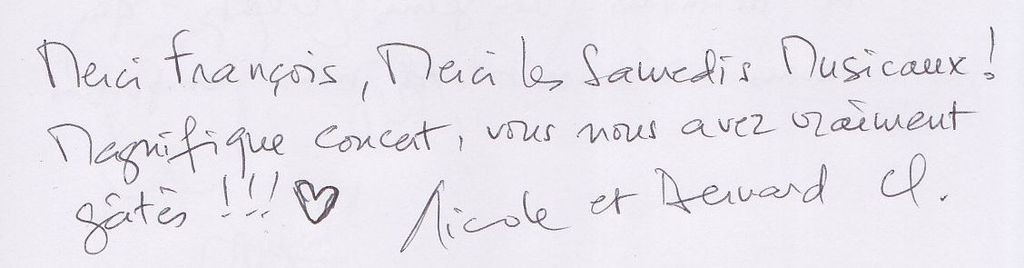 Merci François, Merci les Samedis Musicaux !
Magnifique concert, vous nous avez vraiment
gâtés !!! ♡ Nicole et Bernard Cl.